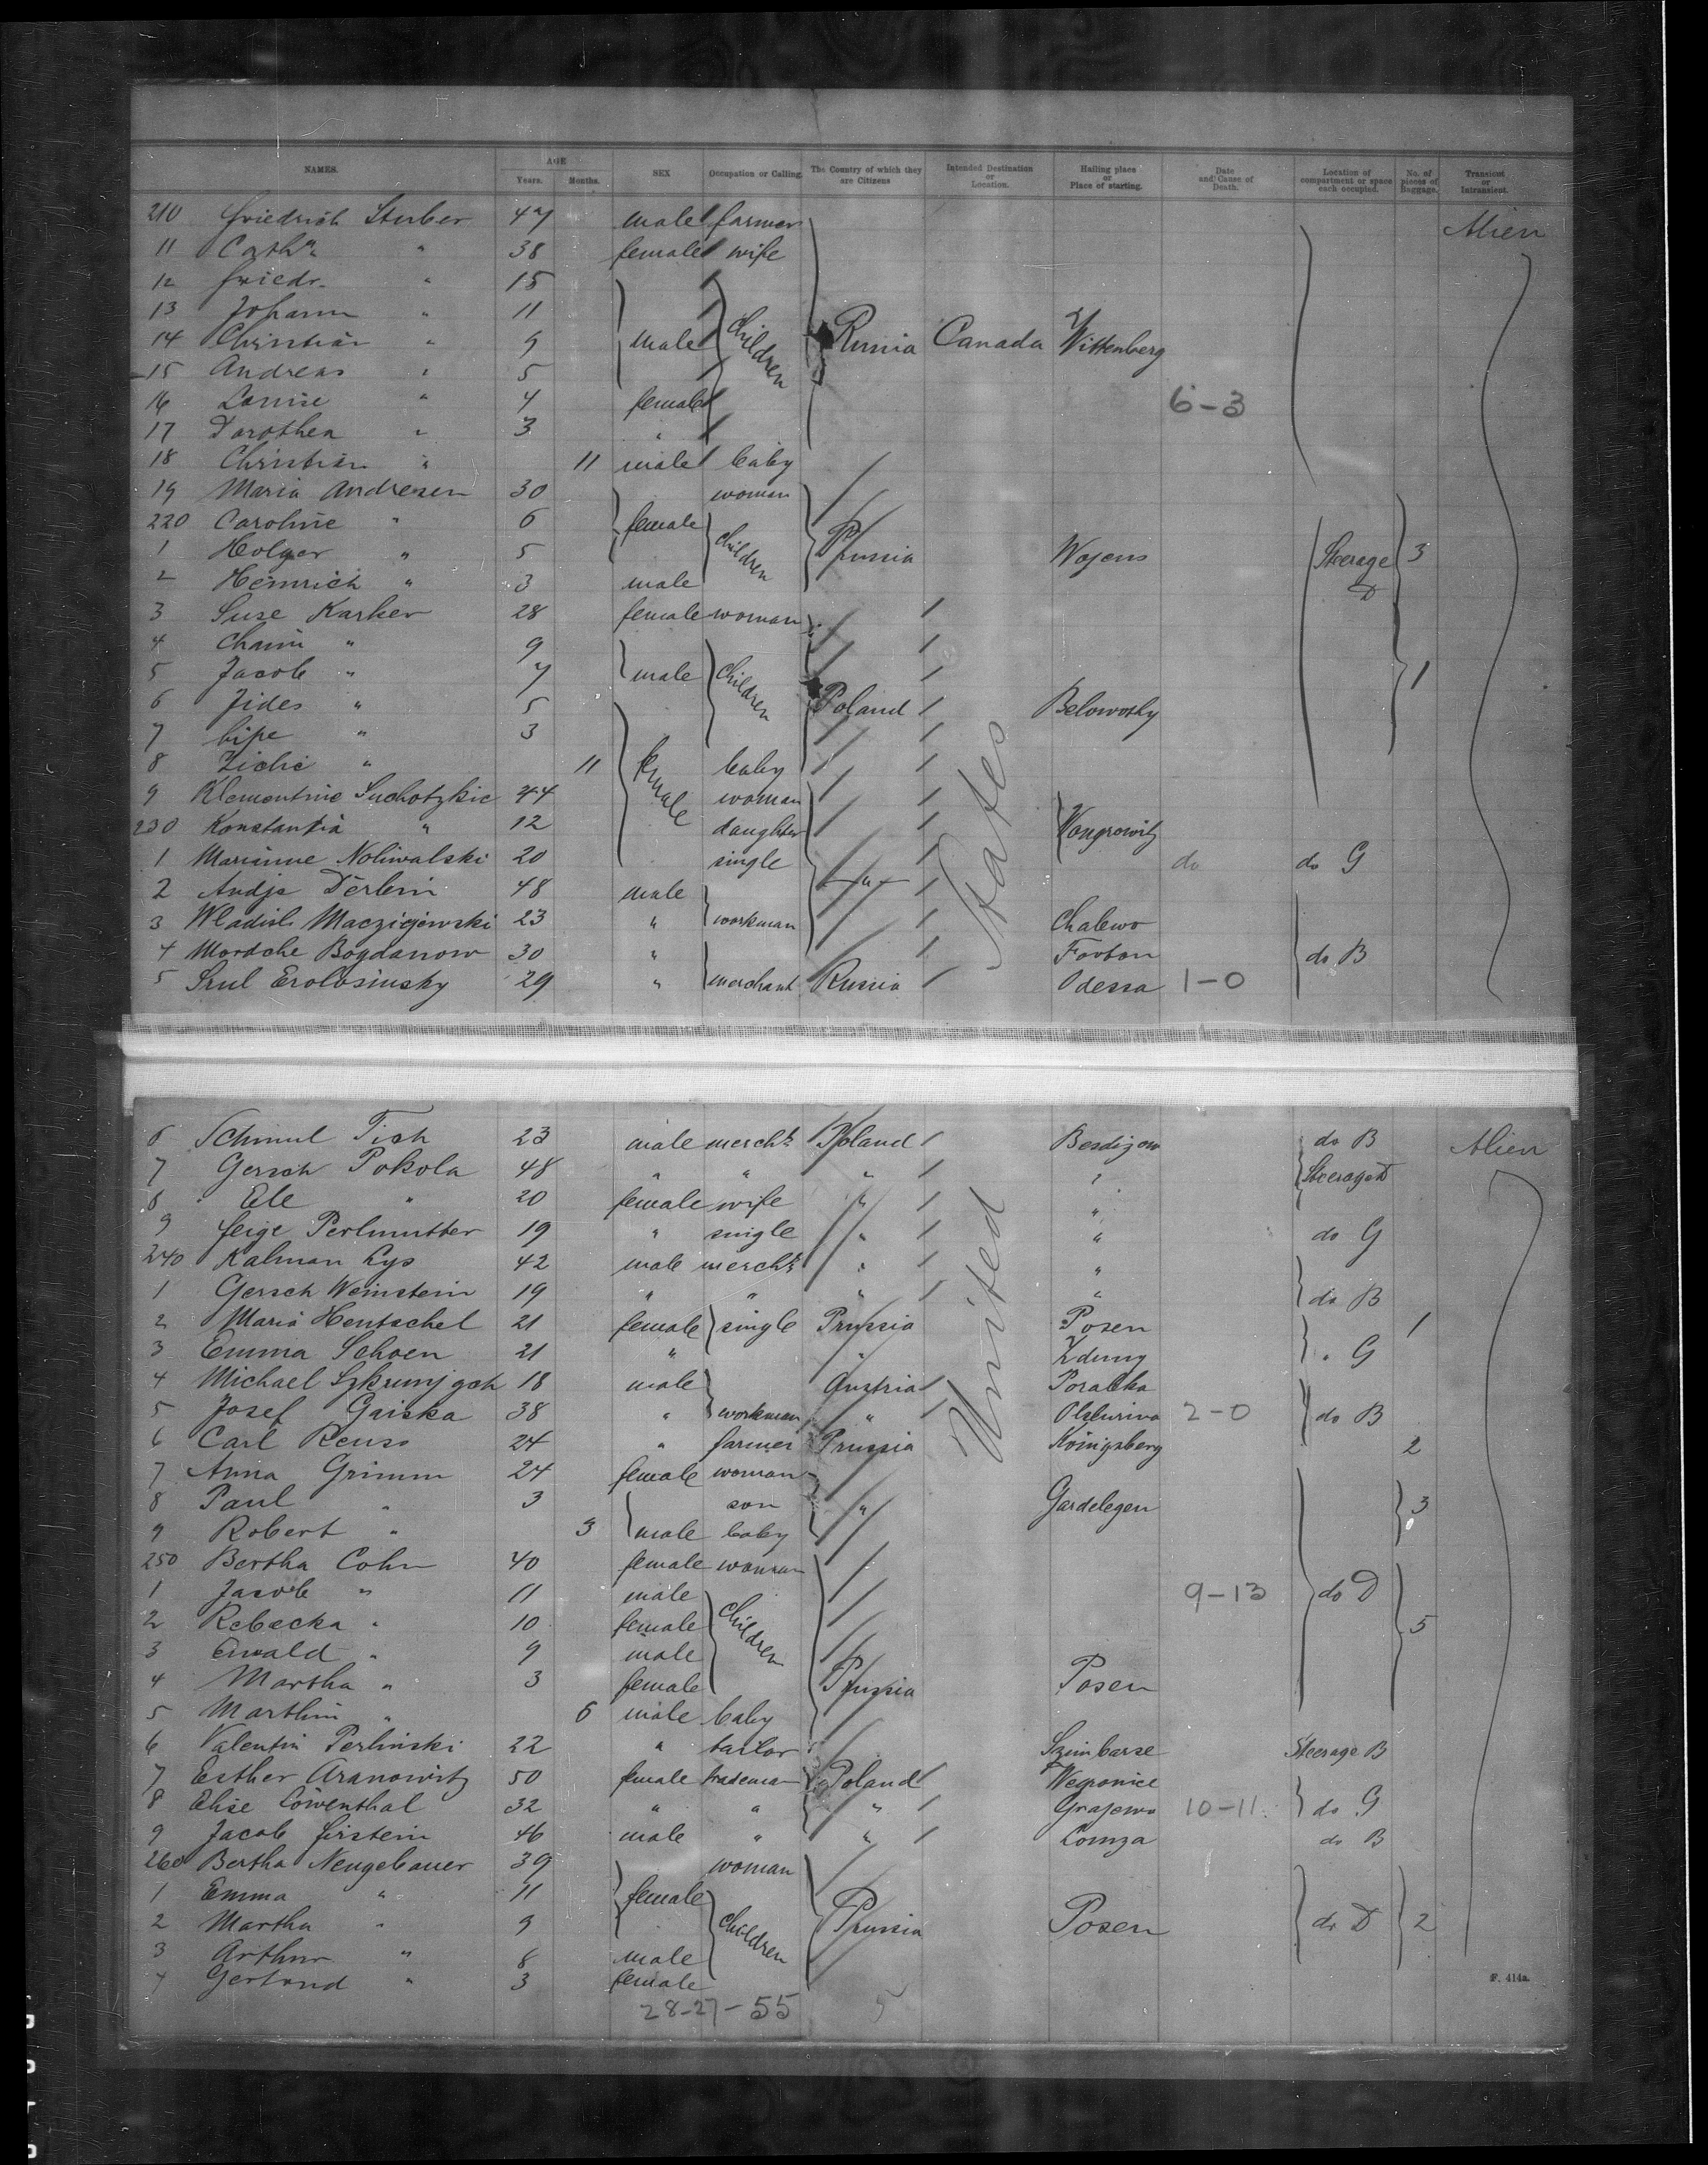 NAMES. AGE Years. Months. SEX Occupation or Calling. The Country of which they are Citizens Intended Destination or Location. Hailing place or Place of starting. Date and Cause of Death. Location of compartment or space each occupied. No. of pieces of Baggage. Transient or Intransient.
210 Friedrich Stuber 47 male farmer Alien
11 Cath. " 38 female wife
12 Friedr. " 15
13 Johann " 11
14 Christian " 9 male children Russia Canada Wittenberg
15 Andreas " 5
16 Louise " 4 female 6-3
17 Dorothea " 3 "
18 Christian " 11 male baby
19 Maria Andresen 30 woman
220 Caroline " 6 female
1 Holger " 5 children Prussia Wojens Steerage D 3
2 Heinrich " 3 male
3 Suse Karker 28 female woman
4 Chaim " 9
5 Jacob " 7 male children 1
6 Jides " 5 Poland Belowosky
7 Lipe " 3
8 Zichi " 11 female baby
9 Klementine Suchotzkie 44 woman
230 Konstantia " 12 daughter Wongrowitz
1 Marianne Noliwalski 20 single do do G
2 Andje Derlein 48 male "
3 Wladisl. Macziejewski 23 " workman Chalewo
4 Mordche Bogdanow 30 " Fordon do B
5 Srul Erolosinsky 29 " merchant Russia Odessa 1-0
6 Schmul Fisch 23 male mercht Poland Besdizow do B Alien
7 Gersch Pokola 48 " " " " Steerage D
8 Ele " 20 female wife " "
9 Feige Perlmutter 19 " single " " do G
240 Kalman Lys 42 male mercht " "
1 Gersch Weinstein 19 " " " " do B
2 Maria Hentschel 21 female single Prussia Posen 1
3 Emma Schoen 21 " " Zduny " G
4 Michael 18 male Austria Poralka
5 Josef Gaiska 38 " workman " 2-0 do B
6 Carl Reuss 24 " farmer Prussia Königsberg 2
7 Anna Grimm 24 female woman
8 Paul " 3 son " Gardelegen 3
9 Robert " 3 male baby
250 Bertha Cohn 40 female woman
1 Jacob " 11 male 9-13 do D
2 Rebecka " 10 female children 5
3 Ewald " 9 male
4 Martha " 3 female Prussia Posen
5 Marthin " 6 male baby
6 Valentin Perlinski 22 " tailor Szimbarse Steerage B
7 Esther Aranowitz 50 female trademan Poland Wegronice
8 Elise Löwenthal 32 " " " Grajewo 10-11 do G
9 Jacob Firstein 46 male " " Lomza do B
260 Bertha Neugebauer 39 woman
1 Emma " 11 female
2 Martha " 9 children Prussia Posen do D 2
3 Arthur " 8 male
4 Gertrud " 3 female
28-27-55 5
F. 414a.
United States